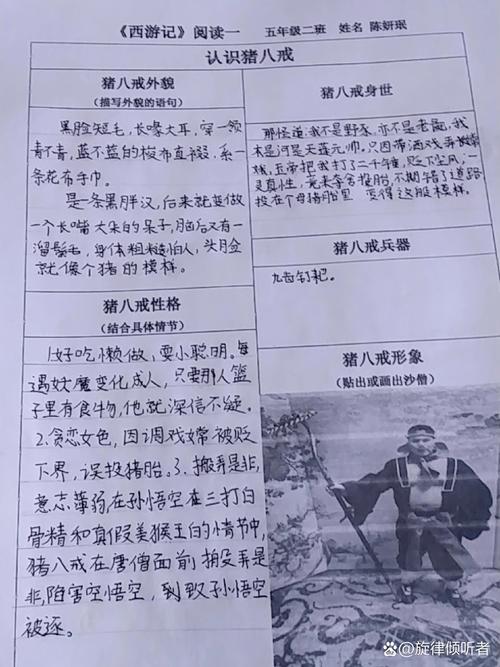 《西游记》阅读一 五年级二班 姓名 陈妍珉
认识猪八戒
猪八戒外貌
(描写外貌的语句)
黑脸短毛，长喙大耳，穿一领
青不青，蓝不蓝的梭布直裰，系一
条花布手巾。
是一条黑胖汉，后来就变做
一个长嘴大朵的呆子，脑后又有一
溜鬃毛，身体粗糙怕人，头脸
就像个猪的模样。
猪八戒性格
(结合具体情节)
1.好吃懒做，耍小聪明。每
遇妖魔变化成人，只要那人篮
子里有食物，他就深信不疑。
2.贪恋女色，因调戏嫦被贬
下界，误投猪胎。3.搬弄是非，
意志薄弱，在孙悟空在三打白
骨精和真假美猴王的情节中，
猪八戒在唐僧面前搬弄是
非，陷害空悟空，到致孙悟空
被逐。
猪八戒身世
那怪道：我不是野豕，亦不是老彘，我
本是河是天蓬元帅，只因带酒戏弄嫦
娥，玉帝把我打了二千锤，贬下尘凡，一
灵真性，竟来夺舍投胎，不期错了道路
投在个母猪胎里 变得这般模样。
猪八戒兵器
九齿钉耙。
猪八戒形象
(贴出或画出沙僧)
旋律倾听者